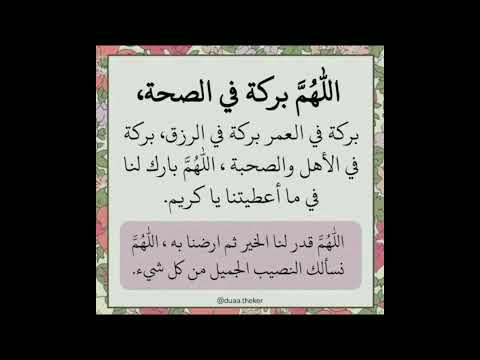 اللَّهُمَّ بركة في الصحة،
بركة في العمر بركة في الرزق، بركة
في الأهل والصحبة ، اللَّهُمَّ بارك لنا
في ما أعطيتنا يا كريم.
اللَّهُمَّ قدر لنا الخير ثم ارضنا به ، اللَّهُمَّ
نسألك النصيب الجميل من كل شيء.
@duaa.theker